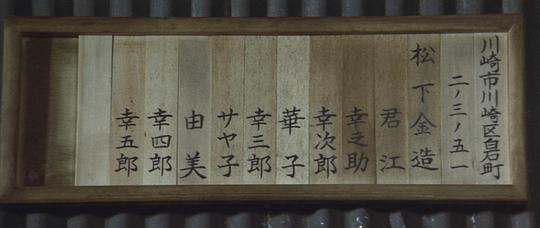 川崎市川崎区白石町
二ノ三ノ五一
松下金造
君江
幸之助
幸次郎
華子
幸三郎
サヤ子
由美
幸四郎
幸五郎